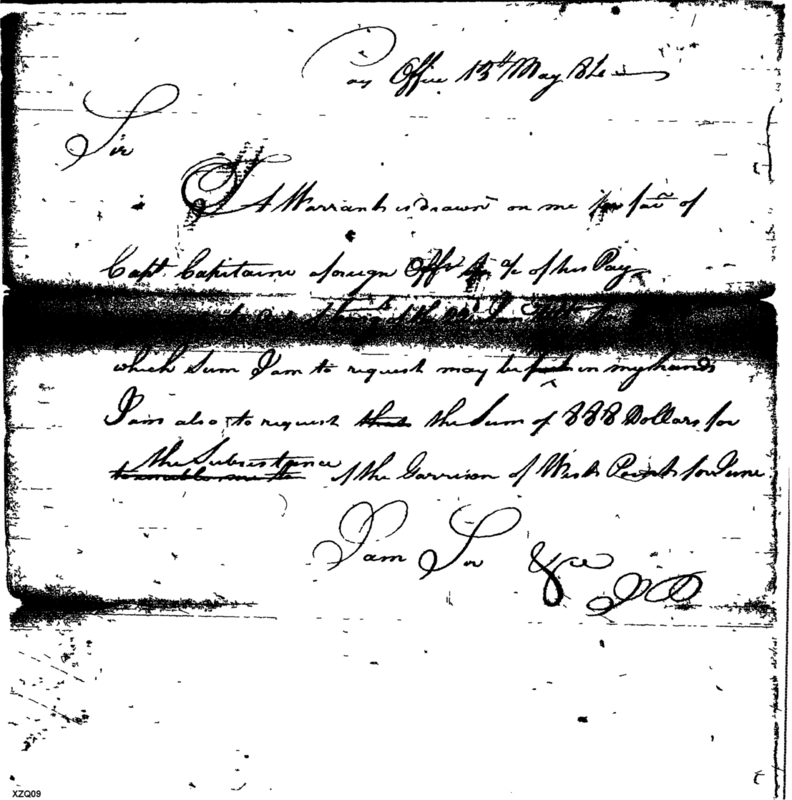 Pay Office 13th May 84
Sir
A Warrant is drawn on me in favr of
Capt. Capitaine a foreign Offr in a/c of his Pay
which Sum I am to request may be put in my hands
I am also to request that the Sum of 888 Dollars for
the Subsistance
to enable me to of the Garrison of West Point for June
I am Sir &ce
JP
XZQ09